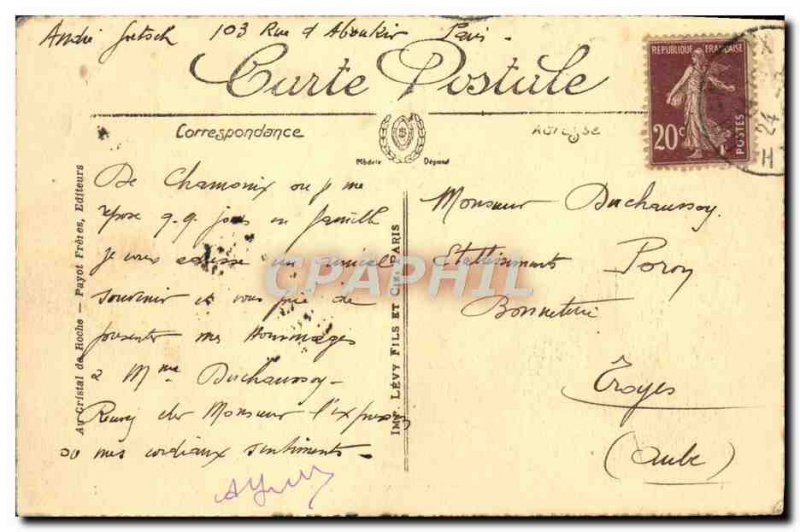 André 103 Rue d'Aboukir Paris -
Carte Postale
Correspondance
Adresse
Modèle Déposé
REPUBLIQUE FRANÇAISE
20c
POSTES
24
H
De Chamonix où je me
repose q.q. jours en famille
je vous adresse un amical
souvenir et vous prie de
présenter mes Hommages
à Mme Duchaussoy -
Recevez cher Monsieur l'expression
de mes cordiaux sentiments
Monsieur Duchaussoy.
Etablissements Poron
Bonneterie
Troyes
(Aube)
Au Cristal de Roche — Payot Frères, Editeurs
IMP. LÉVY FILS ET CIE, PARIS
CPAPHIL